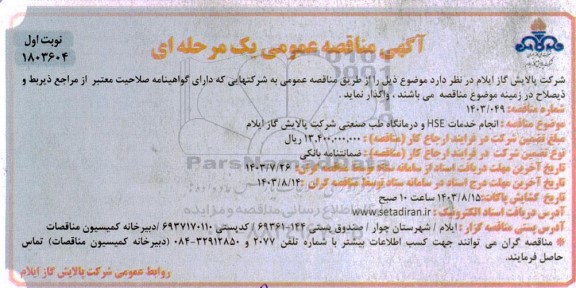 آگهی مناقصه عمومی یک مرحله ای
نوبت اول
۱۸۰۳۶۰۴
شرکت پالایش گاز ایلام در نظر دارد موضوع ذیل را از طریق مناقصه عمومی به شرکتهایی که دارای گواهینامه صلاحیت معتبر از مراجع ذیربط و
ذیصلاح در زمینه موضوع مناقصه می باشند ، واگذار نماید .
شماره مناقصه: ۱۴۰۳/۰۴۹
موضوع مناقصه : انجام خدمات HSE و درمانگاه طب صنعتی شرکت پالایش گاز ایلام
مبلغ تضمین شرکت در فرایند ارجاع کار (مناقصه) : ۱۳,۴۰۰,۰۰۰,۰۰۰ ریال
نوع تضمین شرکت در فرایند ارجاع کار (مناقصه) : ضمانتنامه بانکی
تاریخ آخرین مهلت دریافت اسناد از سامانه ستاد توسط مناقصه گران: ۱۴۰۳/۷/۲۶
تاریخ آخرین مهلت درج اسناد در سامانه ستاد توسط مناقصه گران : ۱۴۰۳/۸/۱۴
تاریخ گشایش پاکات: ۱۴۰۳/۸/۱۵ ساعت ۱۰ صبح
آدرس دریافت اسناد الکترونیک : www.setadiran.ir
آدرس پستی مناقصه گزار : ایلام / شهرستان چوار / صندوق پستی ۱۴۴-۶۹۳۶۱ / کدپستی ۶۹۳۷۱۷۰۱۱۰ /دبیرخانه کمیسیون مناقصات
* مناقصه گران می توانند جهت کسب اطلاعات بیشتر با شماره تلفن ۲۰۷۷ و ۳۲۹۱۲۸۵۰-۰۸۴ (دبیرخانه کمیسیون مناقصات) تماس
حاصل فرمایند.
روابط عمومی شرکت پالایش گاز ایلام
ParsNamadData